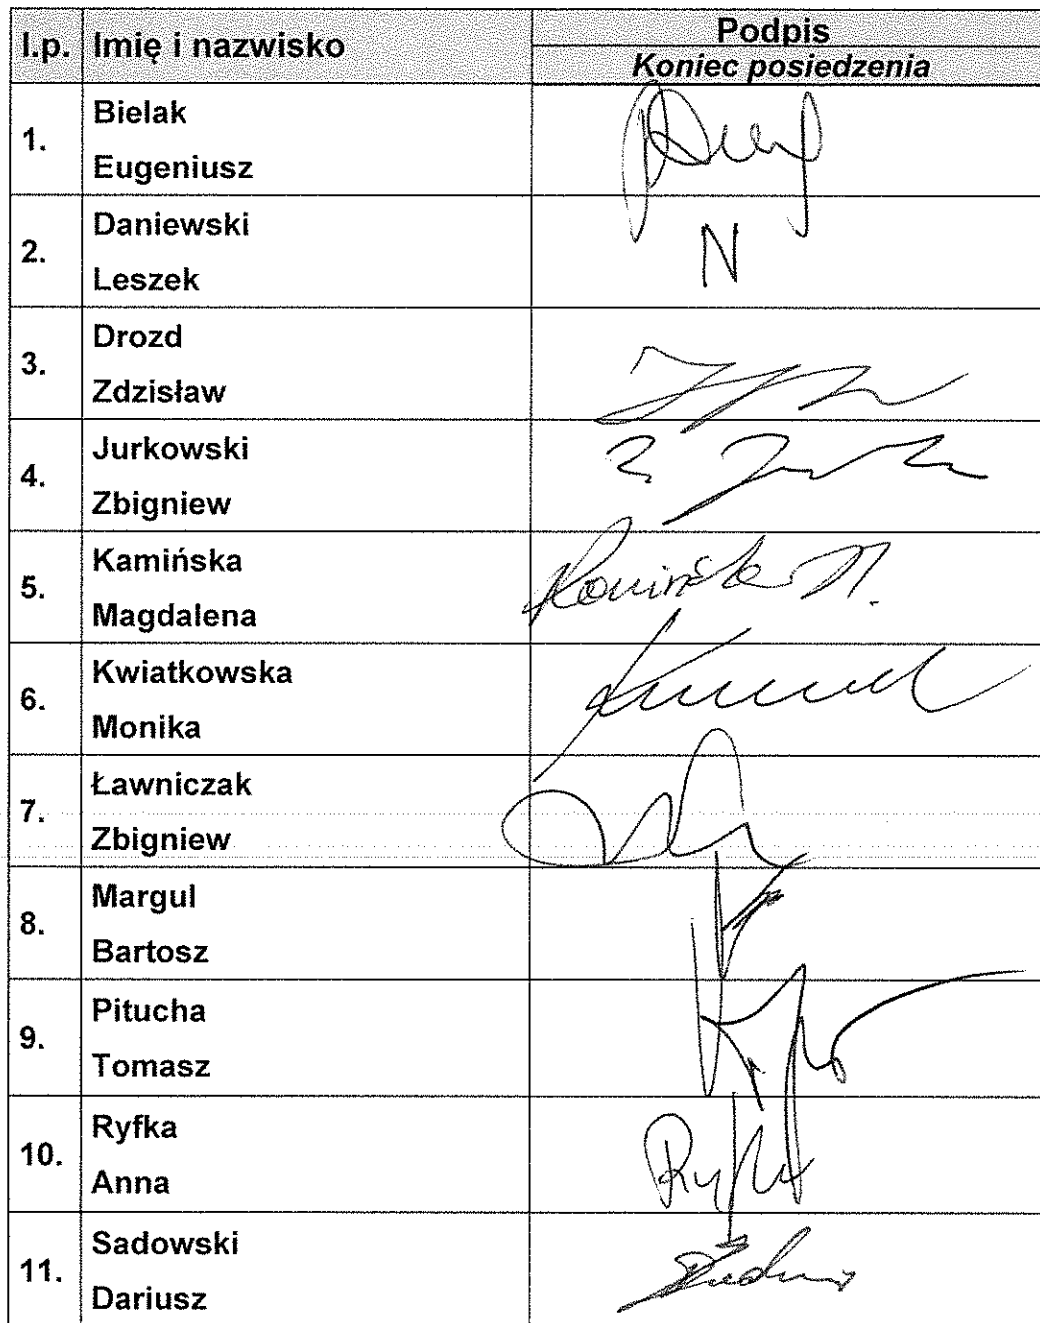 l.p. Imię i nazwisko Podpis
Koniec posiedzenia
1. Bielak
Eugeniusz
2. Daniewski
Leszek
N
3. Drozd
Zdzisław
4. Jurkowski
Zbigniew
5. Kamińska
Magdalena
Kamińska M.
6. Kwiatkowska
Monika
7. Ławniczak
Zbigniew
8. Margul
Bartosz
9. Pitucha
Tomasz
10. Ryfka
Anna
11. Sadowski
Dariusz